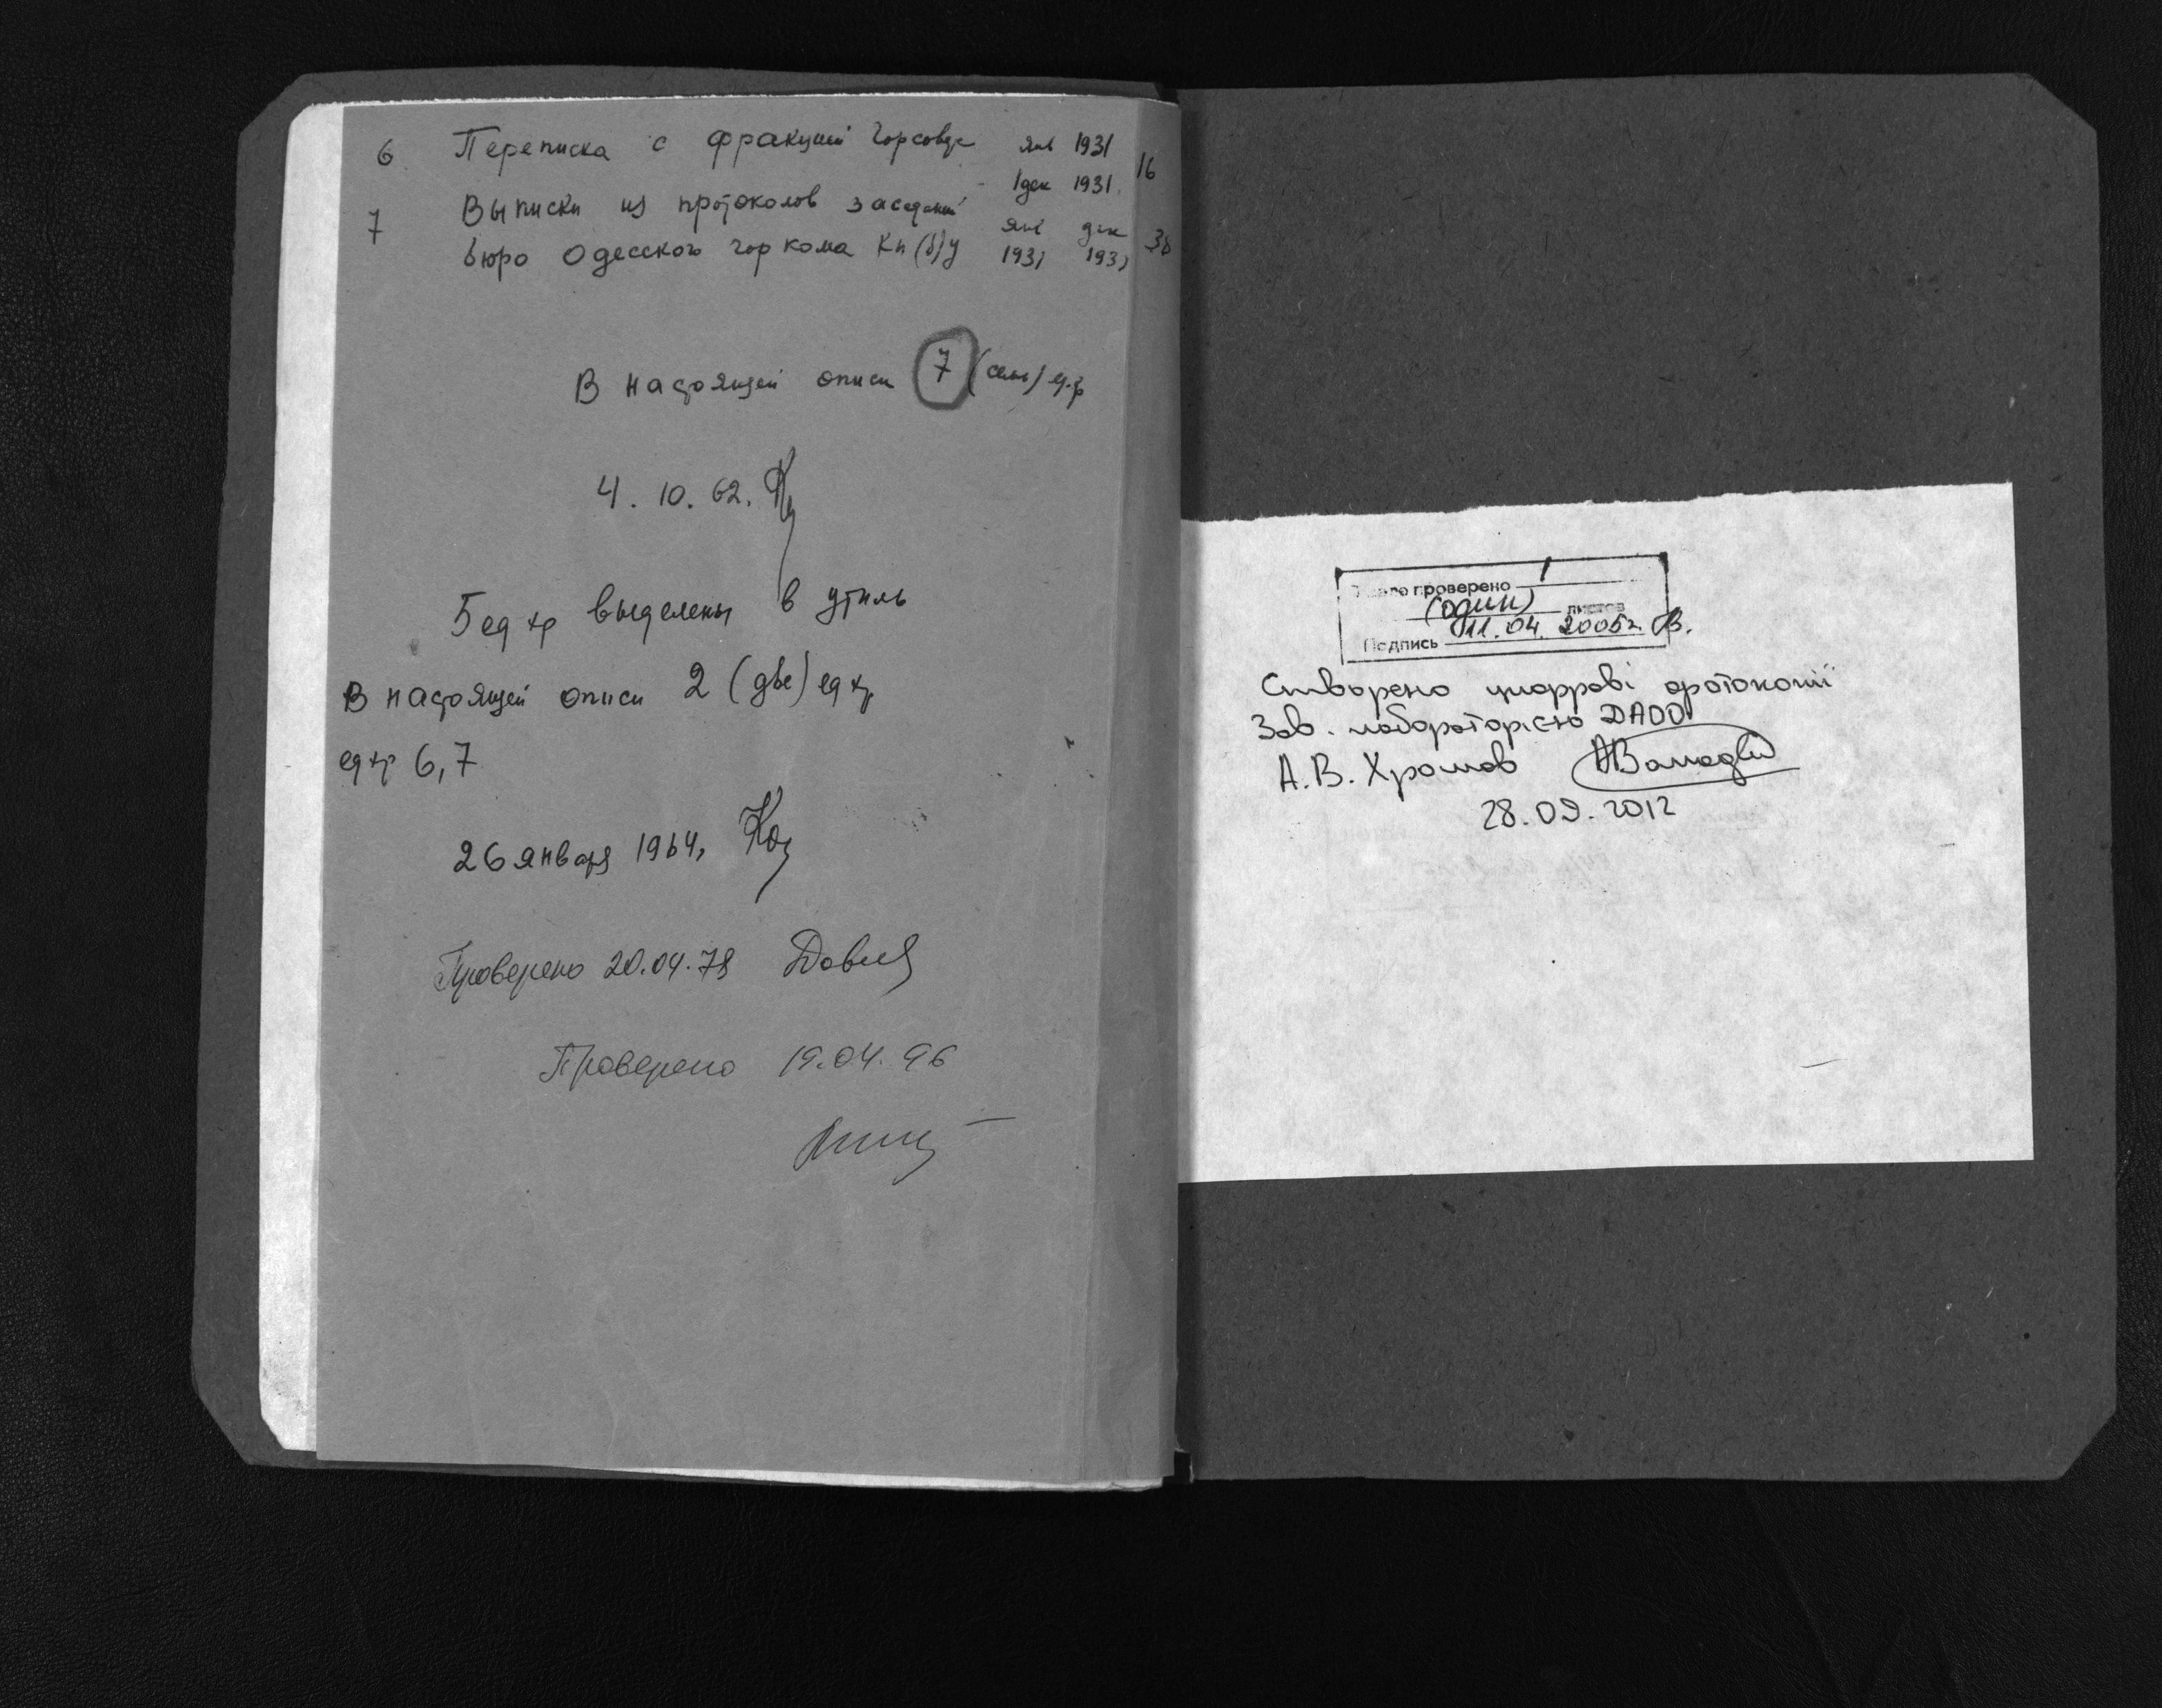 6 Переписка с фракцией Горсовета янв 1931
дек 1931 16
7 Выписки из протоколов заседаний янв дек
бюро Одесского горкома КП(б)У 1931 1931 38
В настоящей описи 7 (семь) ед.хр
4. 10. 62.
5 ед хр выделены в утиль
В настоящей описи 2 (две) ед хр
ед хр 6,7
26 января 1964,
Проверено 20.04.78
Проверено 19.04.96
проверено 1
(один) листов
Подпись 11.04. 2005г.
Створено цифрові фотокопії
Зав. лабораторією ДАОО
А.В. Хромов
28.09.2012